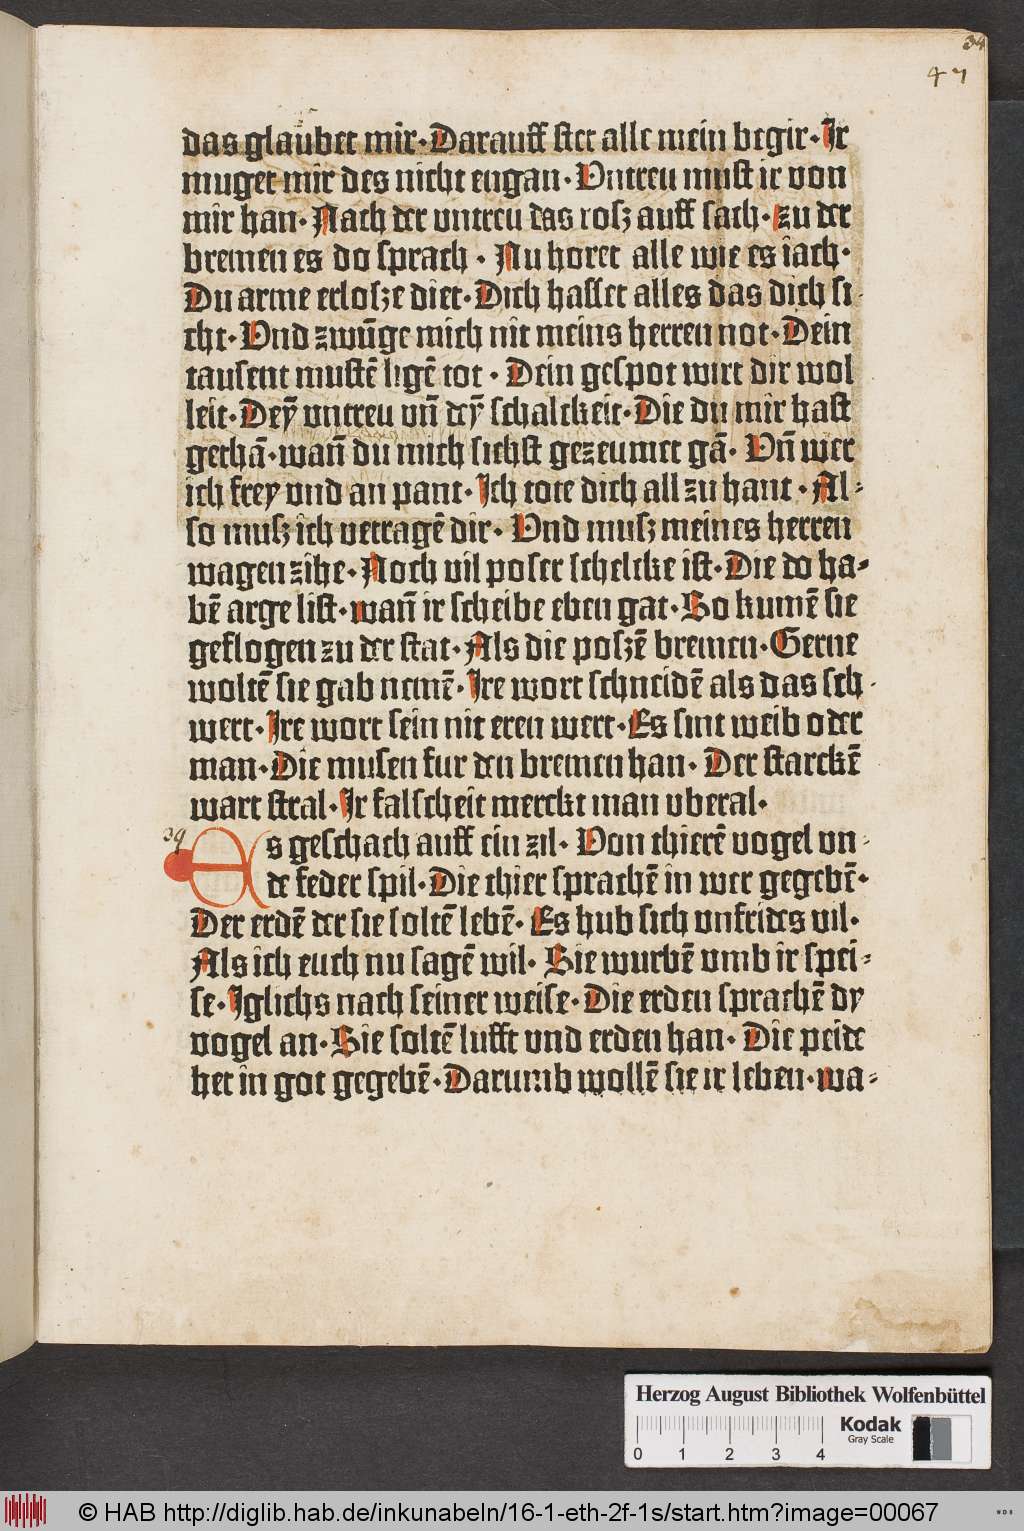 34
47
das glaubet mir· Darauff stet alle mein begir· Ir
muget mir des nicht engan· Vntreu must ir von
mir han· Nach der vntreu das rosz auff sach· zu der
bremen es do sprach · Nu horet alle wie es iach·
Du arme erlosze diet· Dich hasset alles das dich si
cht· Vnd zwūge mich nit meins herren not· Dein
tausent mustē ligē tot · Dein gespot wirt dir wol
leit· Deȳ vntreu vn̄ deȳ schalckeit· Die du mir hast
gethā· wan̄ du mich sichst gezeumet gā· Vn̄ wer
ich frey vnd an pant· Ich tote dich all zu hant · Al⸗
so musz ich vertragē dir· Vnd musz meines herren
wagen zihe· Noch vil poser schelcke ist· Die do ha⸗
bē arge list· wan̄ ir scheibe eben gat· So kumē sie
geflogen zu der stat· Als die poszē bremen· Gerne
woltē sie gab nemē· Ire wort schneidē als das sch
wert· Ire wort sein nit eren wert· Es sint weib oder
man· Die musen fur den bremen han· Der starckē
wart stral· Ir falscheit merckt man vberal·
39
Es geschach auff ein zil· Von thierē vogel vn
de feder spil· Die thier sprachē in wer gegebē·
Der erdē der sie soltē lebē· Es hub sich vnfrides vil·
Als ich euch nu sagē wil· Sie wurbē vmb ir spei⸗
se· Iglichs nach seiner weise· Die erden sprachē dy
vogel an· Sie soltē lufft vnd erden han· Die peide
het in got gegebē· Darumb wollē sie ir leben· wa⸗
Herzog August Bibliothek Wolfenbüttel
Kodak
Gray Scale
0 1 2 3 4
© HAB http://diglib.hab.de/inkunabeln/16-1-eth-2f-1s/start.htm?image=00067